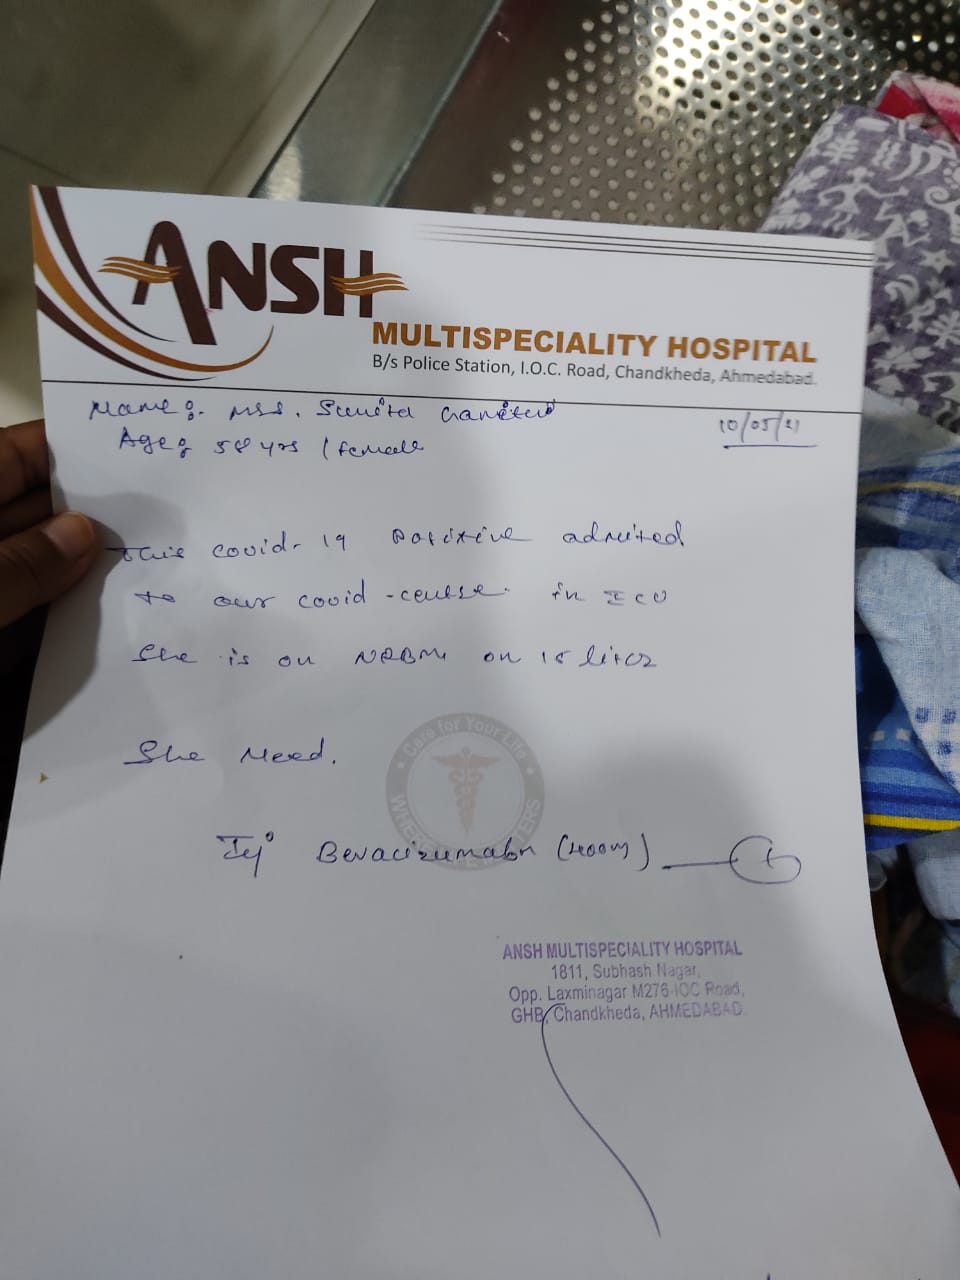 ANSH
MULTISPECIALITY HOSPITAL
B/s Police Station, I.O.C. Road, Chandkheda, Ahmedabad.
Name:- Mrs. Sunita
10/05/21
Age: 58 yrs / female
This covid-19 Positive admited
to our covid-centre. in ICU
She is on NRBM on 15 liter
She Need.
Care for Your Life
Inj Bevacizumab (400mg) 1
ANSH MULTISPECIALITY HOSPITAL
1811, Subhash Nagar,
Opp. Laxminagar M276-IOC Road,
GHB, Chandkheda, AHMEDABAD.